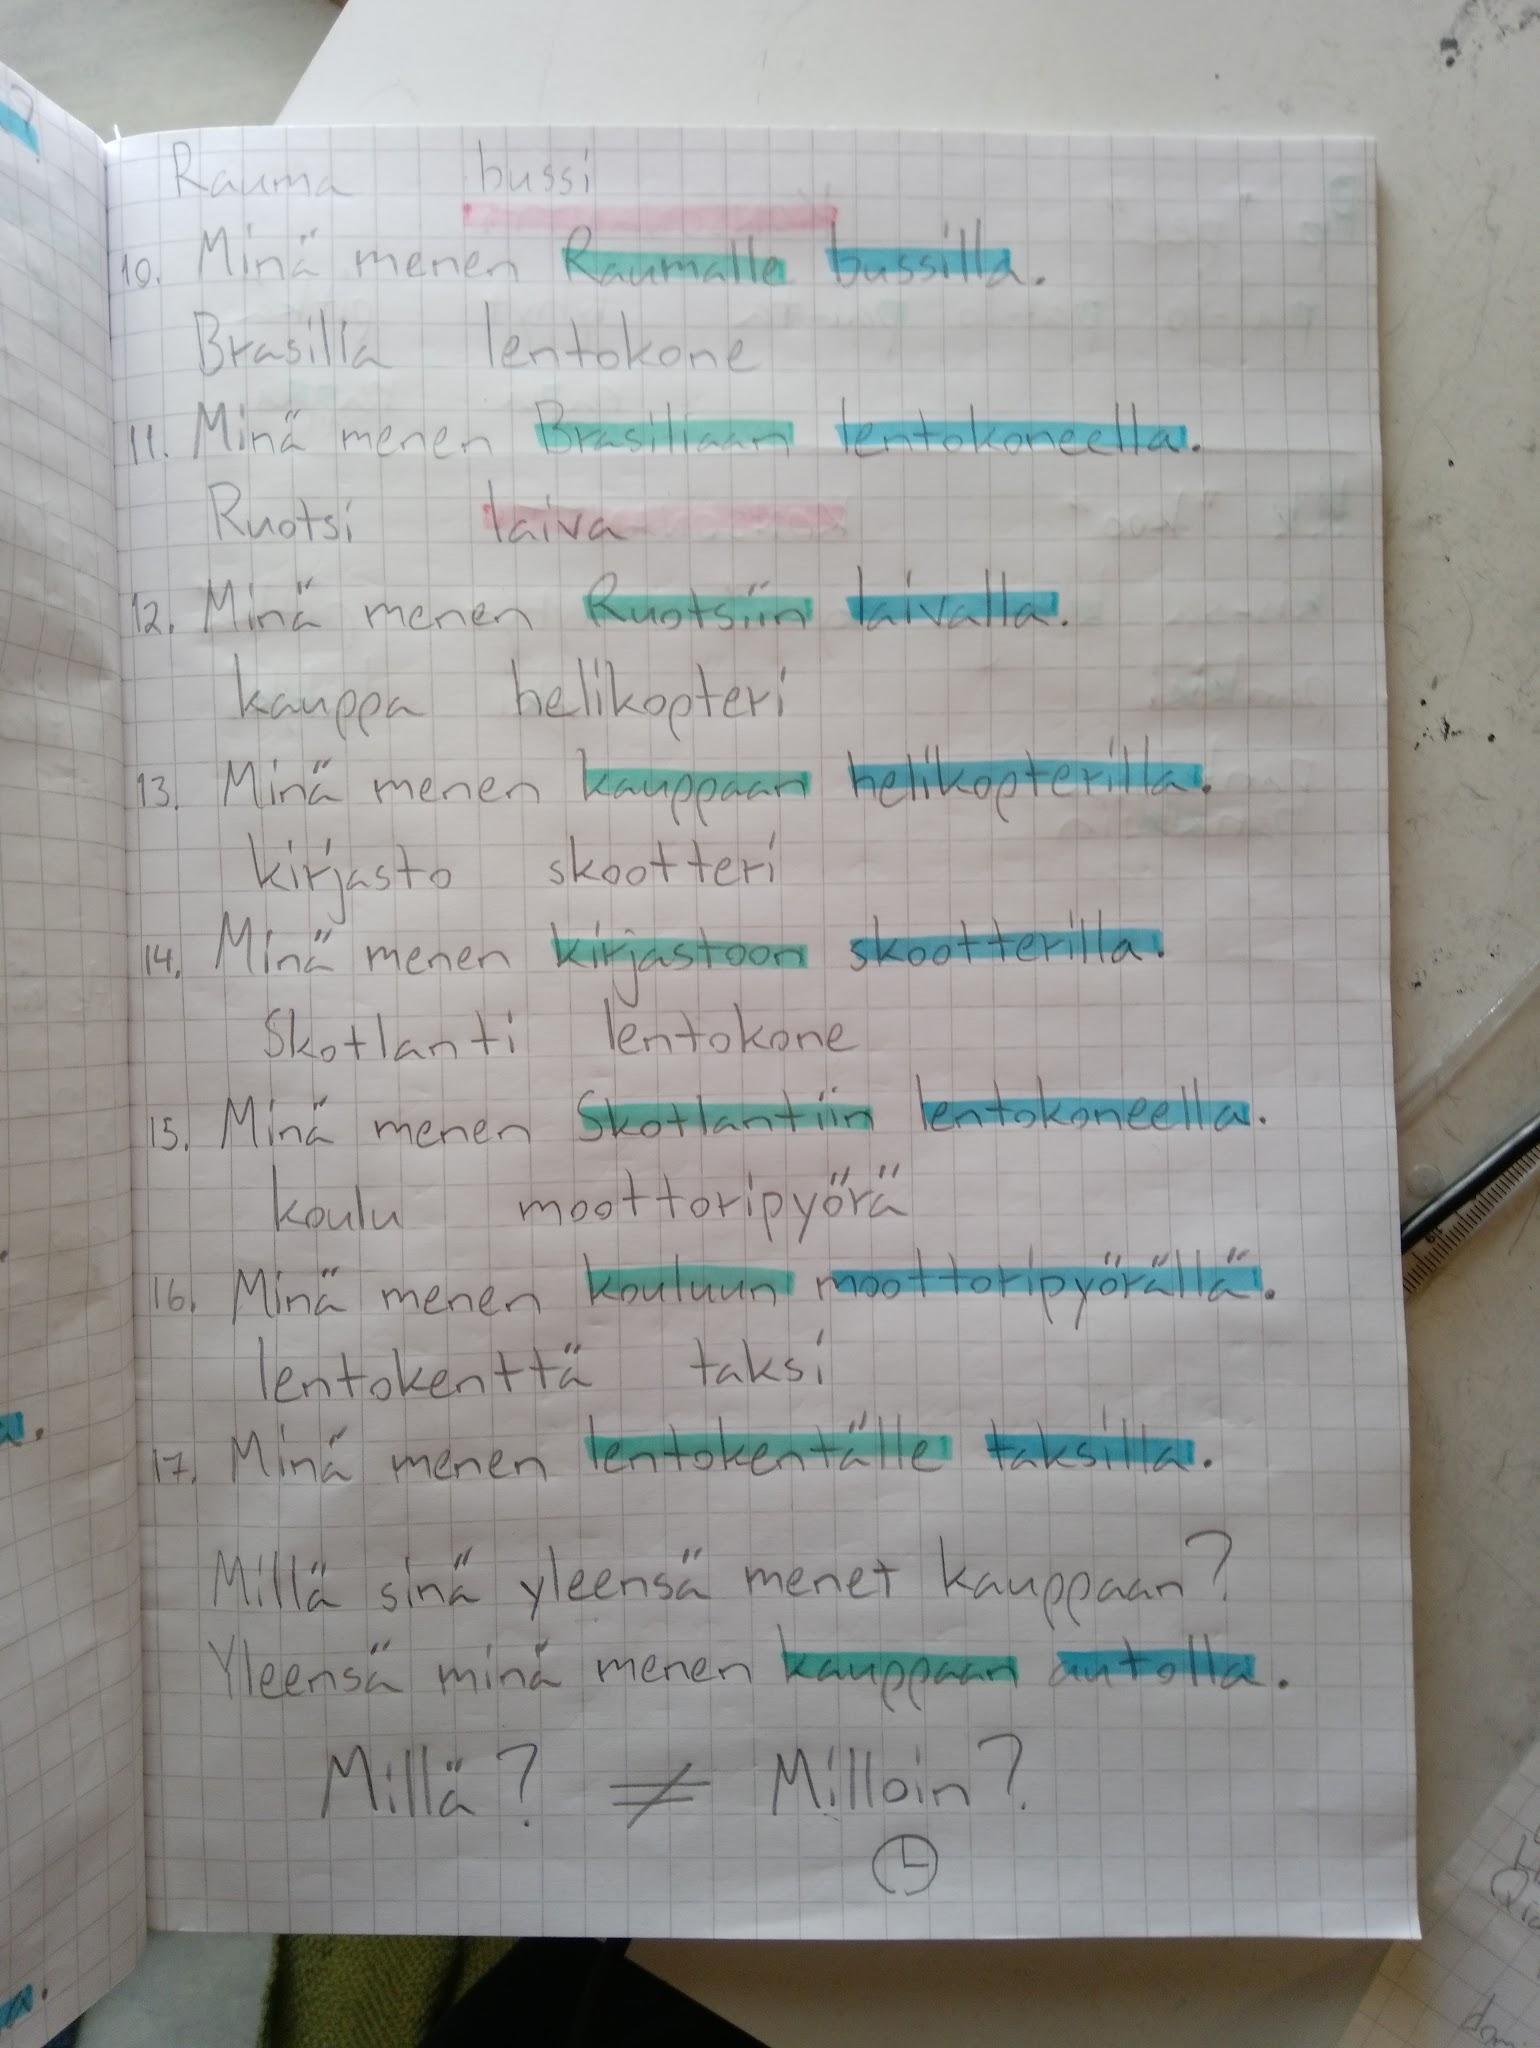 Rauma bussi
10. Minä menen Raumalle bussilla.
Brasilia lentokone
11. Minä menen Brasiliaan lentokoneella.
Ruotsi laiva
12. Minä menen Ruotsiin laivalla.
kauppa helikopteri
13. Minä menen kauppaan helikopterilla.
kirjasto skootteri
14. Minä menen kirjastoon skootterilla.
Skotlanti lentokone
15. Minä menen Skotlantiin lentokoneella.
koulu moottoripyörä
16. Minä menen kouluun moottoripyörällä.
lentokenttä taksi
17. Minä menen lentokentälle taksilla.
Millä sinä yleensä menet kauppaan?
Yleensä minä menen kauppaan autolla.
Millä? ≠ Milloin?